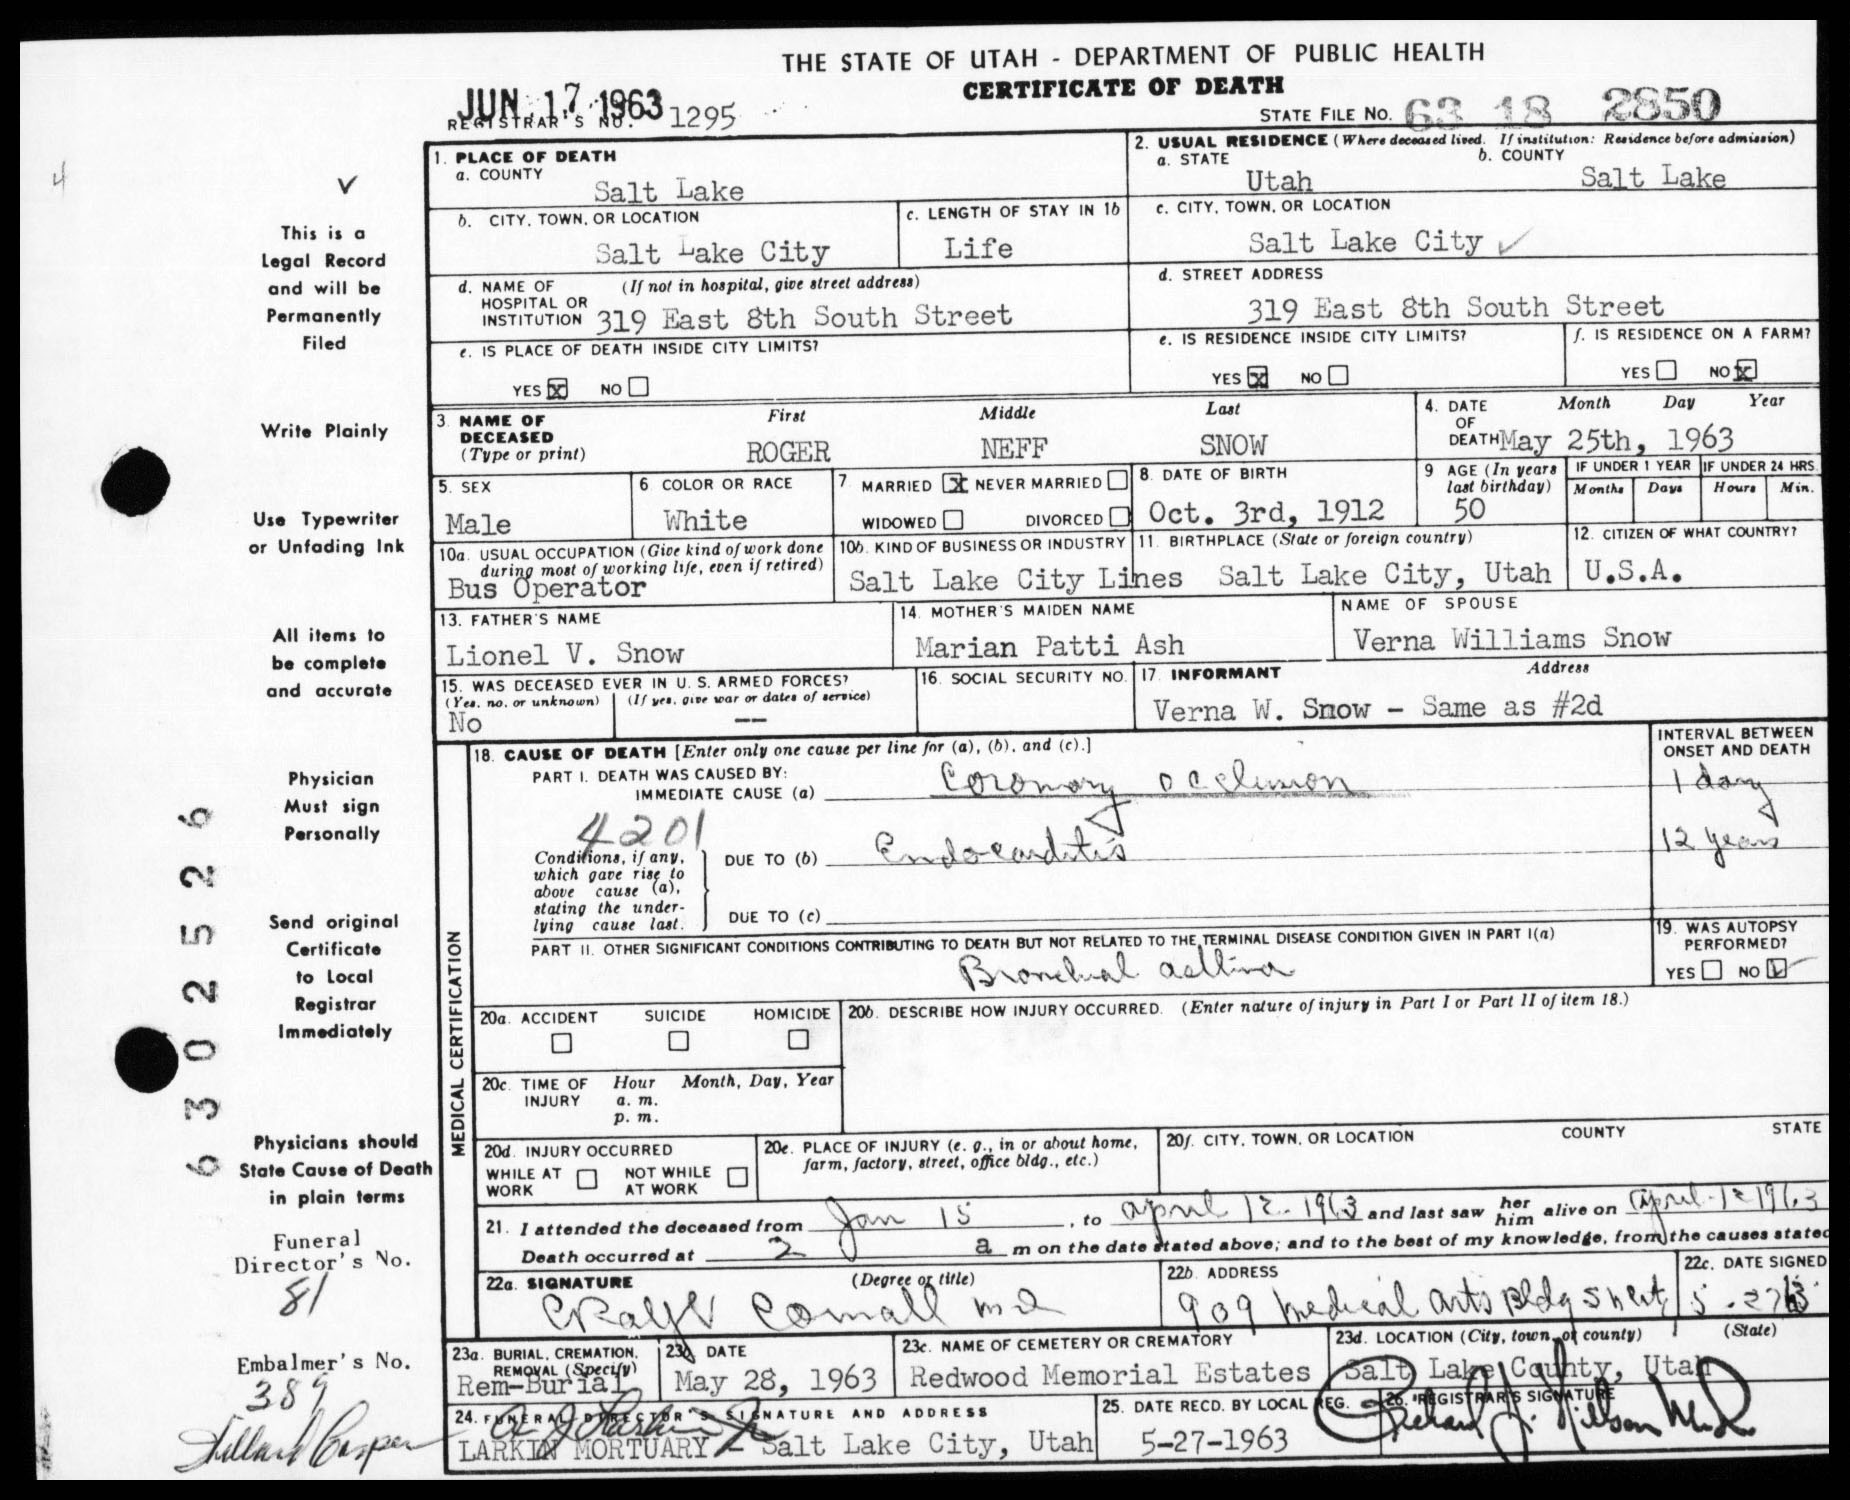 THE STATE OF UTAH - DEPARTMENT OF PUBLIC HEALTH
CERTIFICATE OF DEATH
JUN 17 1963
REGISTRAR'S NO. 1295
STATE FILE NO. 63 18 2850
4
1. PLACE OF DEATH
a. COUNTY
Salt Lake
2. USUAL RESIDENCE (Where deceased lived. If institution: Residence before admission)
a. STATE
b. COUNTY
Utah
Salt Lake
b. CITY, TOWN, OR LOCATION
Salt Lake City
c. LENGTH OF STAY IN 1b
Life
c. CITY, TOWN, OR LOCATION
Salt Lake City ✓
d. NAME OF HOSPITAL OR INSTITUTION
(If not in hospital, give street address)
319 East 8th South Street
d. STREET ADDRESS
319 East 8th South Street
e. IS PLACE OF DEATH INSIDE CITY LIMITS?
YES X NO
e. IS RESIDENCE INSIDE CITY LIMITS?
YES X NO
f. IS RESIDENCE ON A FARM?
YES NO X
3. NAME OF DECEASED
(Type or print)
First Middle Last
ROGER NEFF SNOW
4. DATE OF DEATH
Month Day Year
May 25th, 1963
5. SEX
Male
6. COLOR OR RACE
White
7. MARRIED X NEVER MARRIED
WIDOWED DIVORCED
8. DATE OF BIRTH
Oct. 3rd, 1912
9 AGE (In years last birthday)
50
IF UNDER 1 YEAR
Months Days
IF UNDER 24 HRS.
Hours Min.
10a. USUAL OCCUPATION (Give kind of work done during most of working life, even if retired)
Bus Operator
10b. KIND OF BUSINESS OR INDUSTRY
Salt Lake City Lines
11. BIRTHPLACE (State or foreign country)
Salt Lake City, Utah
12. CITIZEN OF WHAT COUNTRY?
U.S.A.
13. FATHER'S NAME
Lionel V. Snow
14. MOTHER'S MAIDEN NAME
Marian Patti Ash
NAME OF SPOUSE
Verna Williams Snow
15. WAS DECEASED EVER IN U. S. ARMED FORCES?
(Yes, no, or unknown) (If yes, give war or dates of service)
No --
16. SOCIAL SECURITY NO.
17. INFORMANT Address
Verna W. Snow - Same as #2d
MEDICAL CERTIFICATION
18. CAUSE OF DEATH [Enter only one cause per line for (a), (b), and (c).]
INTERVAL BETWEEN ONSET AND DEATH
PART I. DEATH WAS CAUSED BY:
IMMEDIATE CAUSE (a) Coronary occlusion
1 day
4201
Conditions, if any, which gave rise to above cause (a), stating the underlying cause last.
DUE TO (b) Endocarditis
12 years
DUE TO (c)
PART II. OTHER SIGNIFICANT CONDITIONS CONTRIBUTING TO DEATH BUT NOT RELATED TO THE TERMINAL DISEASE CONDITION GIVEN IN PART I(a)
Bronchial asthma
19. WAS AUTOPSY PERFORMED?
YES NO ✓
20a. ACCIDENT SUICIDE HOMICIDE
20b. DESCRIBE HOW INJURY OCCURRED. (Enter nature of injury in Part I or Part II of item 18.)
20c. TIME OF INJURY
Hour Month, Day, Year
a. m.
p. m.
20d. INJURY OCCURRED
WHILE AT WORK
NOT WHILE AT WORK
20e. PLACE OF INJURY (e. g., in or about home, farm, factory, street, office bldg., etc.)
20f. CITY, TOWN, OR LOCATION COUNTY STATE
21. I attended the deceased from Jan 15, to April 12 - 1963 and last saw her him alive on April-12 1963
Death occurred at 2 a m on the date stated above; and to the best of my knowledge, from the causes stated
22a. SIGNATURE (Degree or title)
Cornall MD
22b. ADDRESS
909 Medical Arts Bldg
22c. DATE SIGNED
5-27 63
23a. BURIAL, CREMATION, REMOVAL (Specify)
Rem-Burial
23b. DATE
May 28, 1963
23c. NAME OF CEMETERY OR CREMATORY
Redwood Memorial Estates
23d. LOCATION (City, town, or county) (State)
Salt Lake County, Utah
24. FUNERAL DIRECTOR'S SIGNATURE AND ADDRESS
A J Larkin Jr
LARKIN MORTUARY - Salt Lake City, Utah
25. DATE RECD. BY LOCAL REG.
5-27-1963
26. REGISTRAR'S SIGNATURE
✓
This is a
Legal Record
and will be
Permanently
Filed
Write Plainly
Use Typewriter
or Unfading Ink
All items to
be complete
and accurate
Physician
Must sign
Personally
Send original
Certificate
to Local
Registrar
Immediately
Physicians should
State Cause of Death
in plain terms
Funeral
Director's No.
81
Embalmer's No.
389
6302526